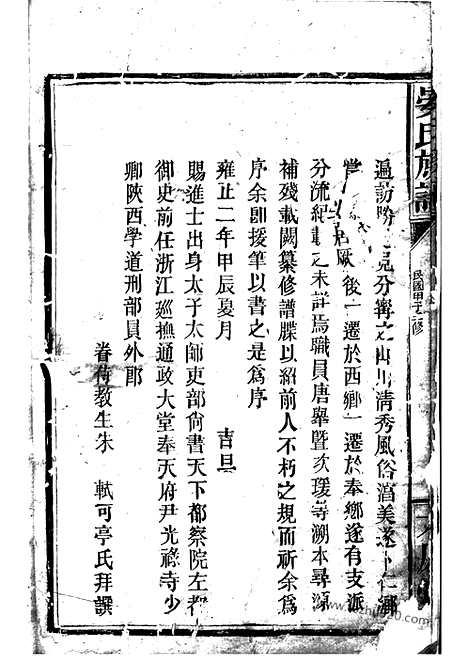 晏氏族譜
民國甲子三修
遍訪勝 見分寧之山川清秀風俗湻美遂卜仁鄉
居厥後一遷於西鄉一遷於奉鄉遂有支派
分流紀載之未詳焉職員唐舉暨次瑗等溯本尋源
補殘載闕纂修譜牒以紹前人不朽之規而祈余為
序余卽援筆以書之是為序
雍正二年甲辰夏月 吉旦
賜進士出身太子太師吏部尙書天下都察院左都
御史前任浙江廵撫通政大堂奉天府尹光祿寺少
卿陝西學道刑部員外郎
眷侍教生朱 軾可亭氏拜譔